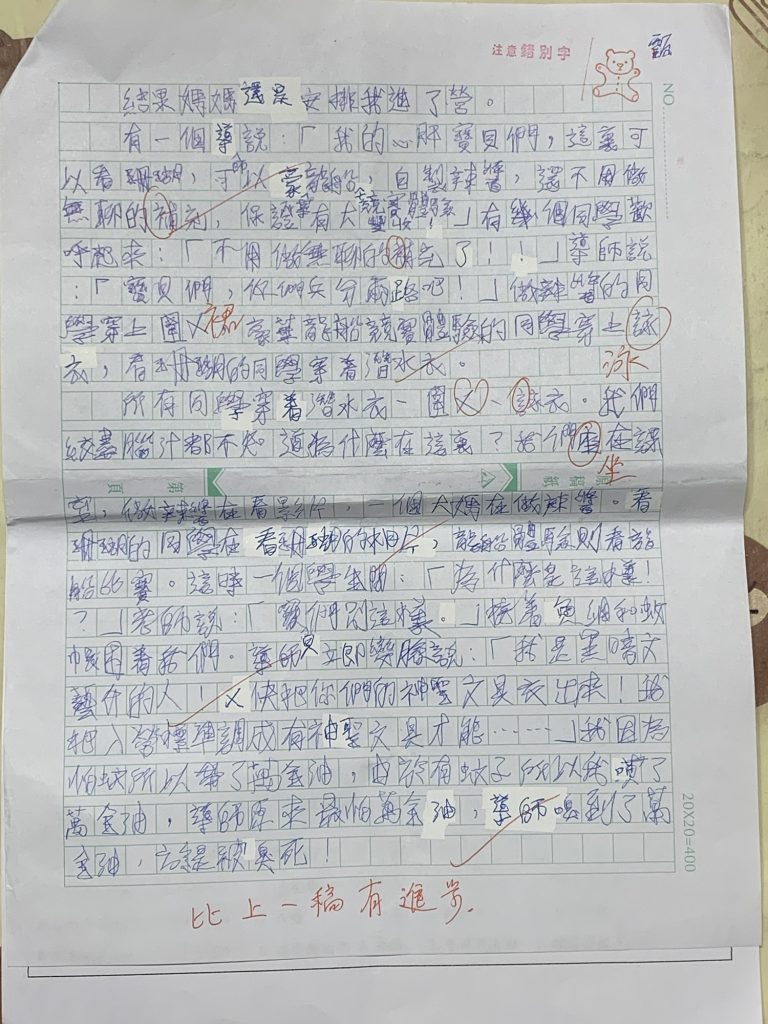 注意錯別字
NO
結果媽媽還是安排我進了營。
有一個導說:「我的心肝寶貝們,這裏可
師
以看珊瑚,可以豪龍船,自製辣醬,還不用做
無聊的補充,保證有大 」有幾個同學歡
呼起來:「不用做無聊的補充了!!」導師說
:「寶貝們,你們兵分兩路吧!」做辣醬的同
學穿上圍X裙豪華龍船競賽體驗的同學穿上詠
衣,看珊瑚的同學穿着潛水衣。
泳
所有同學穿着潛水衣、圍X、詠衣。我們
絞盡腦汁都不知道為什麼在這裏?我們座在課
坐
第 頁
原稿紙
室,做辣醬在看影片,一個大媽在做辣醬。看
珊瑚的同學在看珊瑚的相片,龍船體驗則看龍
船比賽。這時一個學生問:「為什麼是這樣!
?」老師說:「寶們別這樣。」拖着魚網和蚊
貝
帳困着我們。導師立即變臉說:「我是黑暗文
藝界的人!X快把你們的神聖文具衣出來!我
把入營標準調成有神聖文具才能……」我因為
怕蚊所以帶了萬金油,由於有蚊子所以我噴了
萬金油,導師原來最怕萬金油,導師嗅到了萬
金油,立即被臭死!
20X20=400
比上一稿有進步.